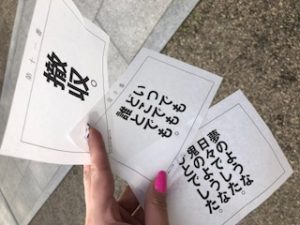 撤収。
いつでも
どこでも
誰とでも。
夢のような
日々でした
鬼のような
とでした。